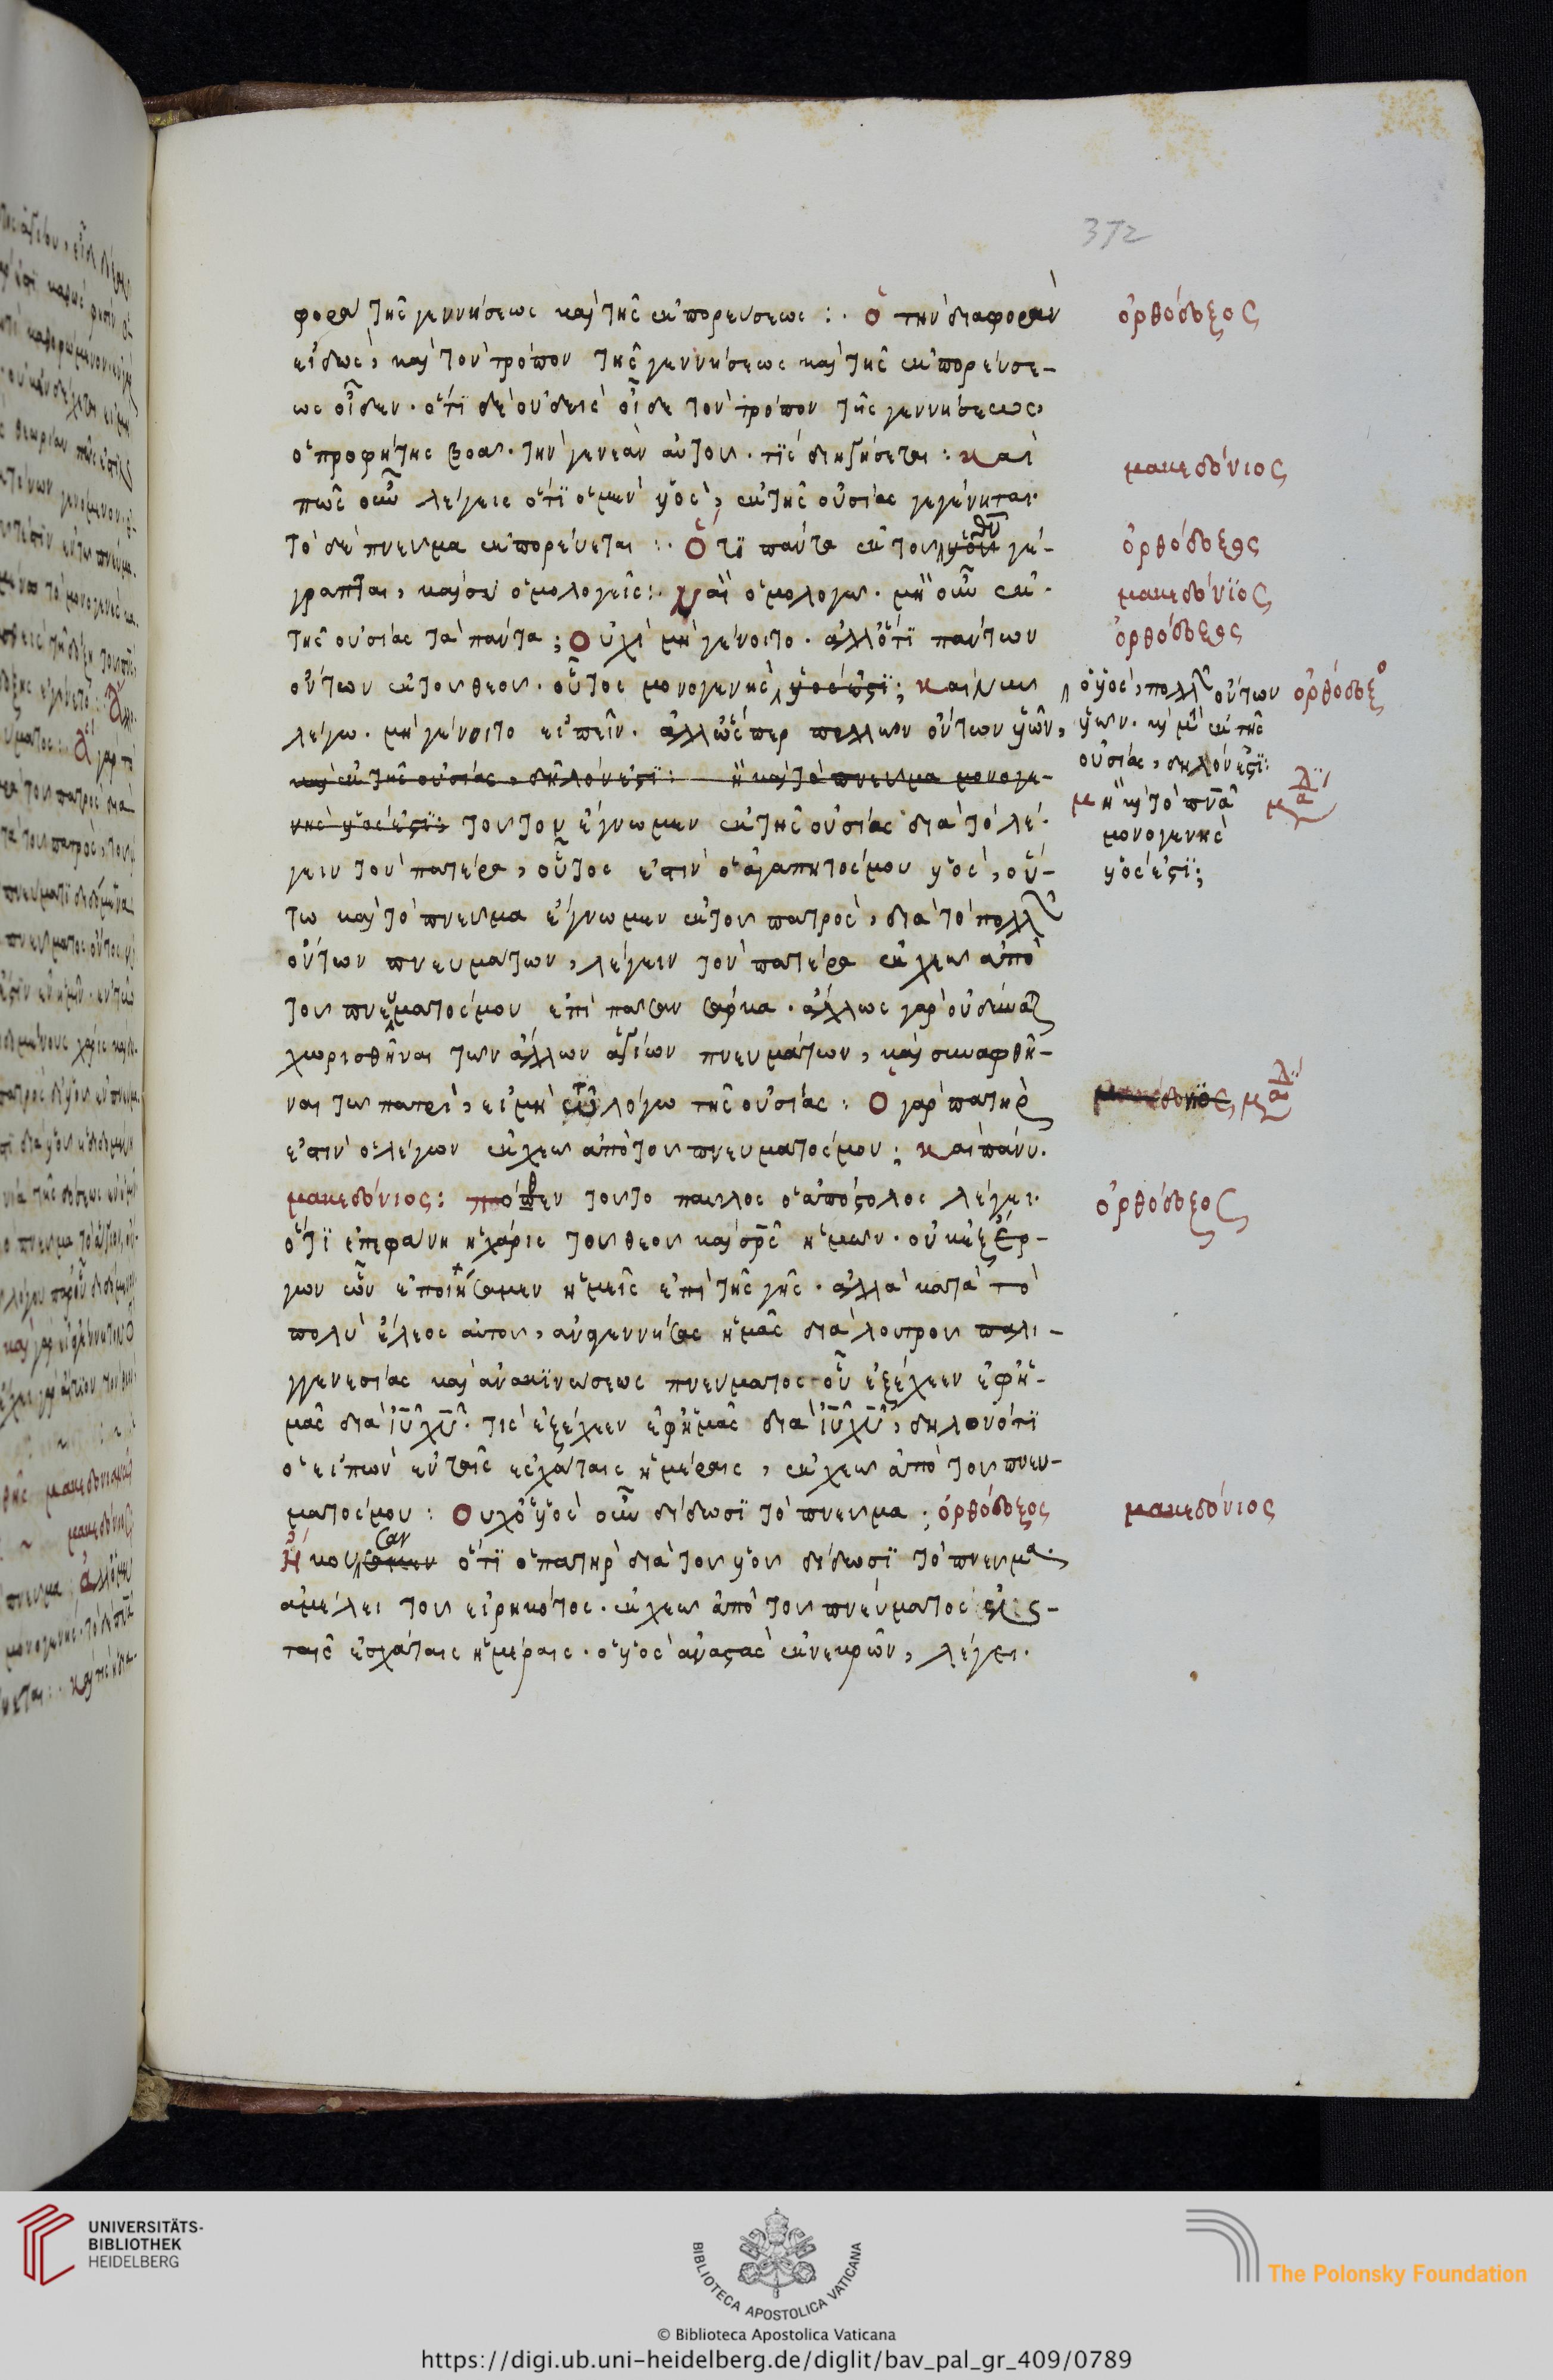 372
φορὰν τῆς γεννήσεως καὶ τῆς ἐκπορεύσεως :· Ὁ τὴν διαφορὰν ὀρθόδοξος
εἰδὼς, καὶ τὸν τρόπον τῆς γεννήσεως καὶ τῆς ἐκπορεύσε-
ως οἶδεν· ὅτι δὲ οὐδεὶς οἶδε τὸν τρόπον τῆς γεννήσεως,
ὁ προφήτης βοᾶ· τὴν γενεὰν αὐτοῦ· τίς διηγήσεται : καὶ μακεδόνιος
πῶς οὖν λέγεις ὅτι ὁ μὲν υἱὸς, ἐκ τῆς οὐσίας γεγένηται·
τὸ δὲ πνεῦμα ἐκπορεύεται :· Ὅτι πάντα ἐκ τοῦ θῦ γέ- ὀρθόδοξος
γραπται, καὶ σὺ ὁμολογεῖς :· Ναὶ ὁμολογῶ· μὴ οὖν ἐκ μακεδόνϊος
τῆς οὐσίας τὰ πάντα ; Οὐχὶ μὴ γένοιτο· ἀλλ' ὅτι πάντων ὀρθόδοξος
ὄντων ἐκ τοῦ θεοῦ· οὗτος μονογενὴς υἱός ἐστϊ ; καὶ
ὁ υἱὸς, πολλῶν ὄντων ὀρθόδοξο
λέγω· μὴ γένοιτο εἰπεῖν· ἀλλ' ὥσπερ πολλῶν ὄντων υἱῶν,
υἱῶν· ἐκ τῆς
οὐσίας, δηλόνεστϊ :
καὶ ἐκ τῆς οὐσίας, δηλόνεστϊ : ἢ καὶ τὸ πνεῦμα μονογε-
ἢ καὶ τὸ πνᾶ
μονογενὴς
υἱός ἐστϊ ;
νὴς υἱός ἐστϊ ; τοῦτον ἔγνωμεν ἐκ τῆς οὐσίας διὰ τὸ λέ-
γειν τὸν πατέρα, οὗτος ἐστὶν ὁ ἀγαπητός μου υἱὸς, οὕ-
τω καὶ τὸ πνεῦμα ἔγνωμεν ἐκ τοῦ πατρὸς, διὰ τὸ πολλῶν
ὄντων πνευμάτων, λέγειν τὸν πατέρα ἐκχεῶ ἀπὸ
τοῦ πνεύματός μου ἐπὶ πᾶσαν σάρκα· ἄλλως γὰρ οὐ δύναται
χωρισθῆναι τῶν ἄλλων ἁγίων πνευμάτων, καὶ συναφθῆ-
ναι τῷ πατρὶ, εἰ μὴ τῷ λόγω τῆς οὐσίας : Ὁ γὰρ πατὴρ
ἐστὶν ὁ λέγων ἐκχεῶ ἀπὸ τοῦ πνεύματός μου ; καὶ πάνυ·
μακεδόνιος : πόθεν τοῦτο παῦλος ὁ ἀπόστολος λέγει· ὀρθόδοξος
ὅτϊ ἐπεφάνη ἡ χάρις τοῦ θεοῦ καὶ σρς ἡμῶν· οὐκ ἐξ ἔρ-
γων ὧν ἐποιήσαμεν ἡμεῖς ἐπὶ τῆς γῆς· ἀλλὰ κατὰ τὸ
πολὺ ἔλεος αὐτοῦ, ἀναγεννήσας ἡμᾶς διὰ λουτροῦ παλι-
γγενεσίας καὶ ἀνακϊνώσεως πνεύματος οὗ ἐξέχεεν ἐφ' ἡ-
μᾶς διὰ ἰῦ χῦ· τίς ἐξέχεεν ἐφ' ἡμᾶς διὰ ἰῦ χῦ, δηλονότϊ
ὁ εἰπὼν ἐν ταῖς ἐσχάταις ἡμέραις, ἐκχεῶ ἀπὸ τοῦ πνεύ-
ματός μου : Οὐχ ὁ υἱὸς οὖν δίδωσϊ τὸ πνεῦμα ; ὀρθόδοξος μακεδόνιος
Ἤκουσαν ὅτϊ ὁ πατὴρ διὰ τοῦ υἱοῦ δίδωσϊ τὸ πνεῦμα·
ἀμέλει τοῦ εἰρηκότος· ἐκχεῶ ἀπὸ τοῦ πνεύματός
ταῖς ἐσχάταις ἡμέραις· ὁ υἱὸς ἀναστὰς ἐκ νεκρῶν, λέγει·
UNIVERSITÄTS-
BIBLIOTHEK
HEIDELBERG
BIBLIOTECA APOSTOLICA VATICANA
The Polonsky Foundation
© Biblioteca Apostolica Vaticana
https://digi.ub.uni-heidelberg.de/diglit/bav_pal_gr_409/0789